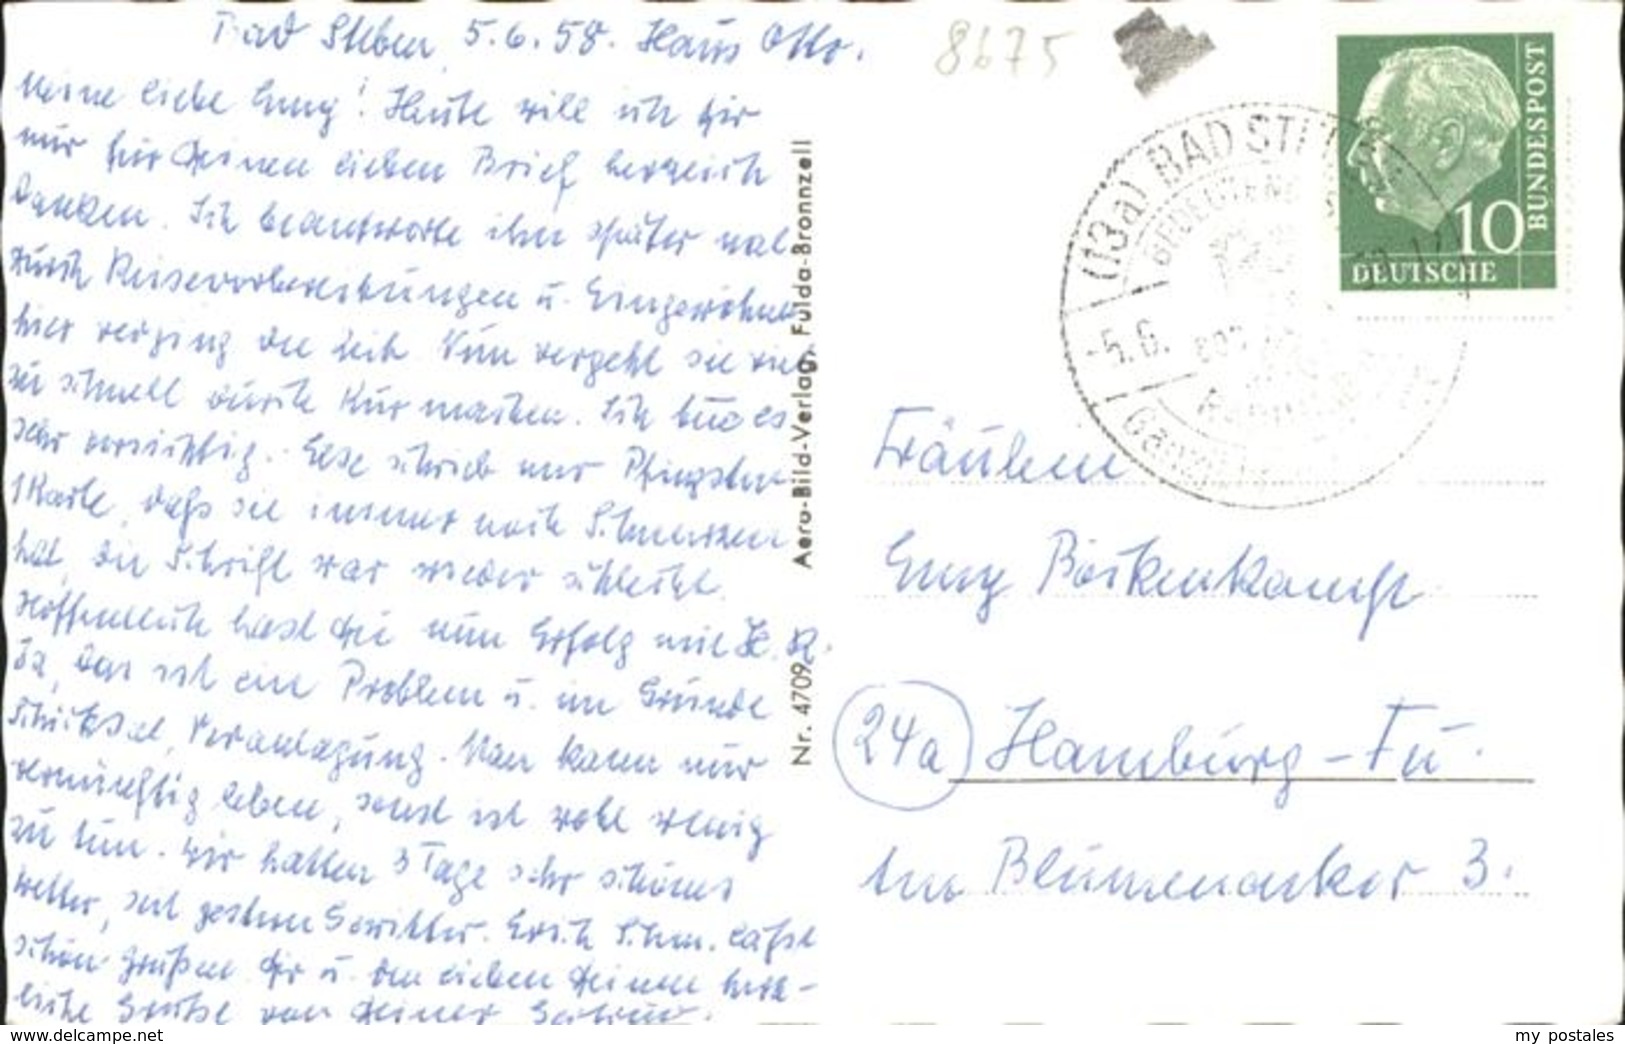 Bad Steben, 5.6.58. Haus Otto.
Meine liebe Emmy! Heute will ich Dir
nur für Deinen lieben Brief herzlich
danken. Ich beantworte ihn später mal
durch Reisevorbereitungen u. Eingewöhnen
hier verging die Zeit. Nun vergeht sie viel
zu schnell durch Kur machen. Ich tue es
sehr vorsichtig. Else schrieb mir Pfingsten
1 Karte, daß sie immer noch Schmerzen
hat, die Schrift war wieder schlecht.
Hoffentlich hast Du nun Erfolg mit H. R.
Ja, das ist ein Problem u. im Grunde
Schicksal, Veranlagung. Man kann nur
vernünftig leben, sonst ist wohl wenig
zu tun. Wir hatten 3 Tage sehr schönes
Wetter, seit gestern Gewitter. Erich Schm. läßt
schön grüßen Dir u. den lieben Deinen herz-
liche Grüße von Deiner Gertrud.
Nr. 4709 Aero-Bild-Verlag, Fulda-Bronnzell
8675
(13a) BAD STEBEN
-5.6.
DEUTSCHE
BUNDESPOST
10
Fräulein
Emmy Böckenkamp
24a Hamburg-Fu.
Am Blumenacker 3.
my postales
www.delcampe.net